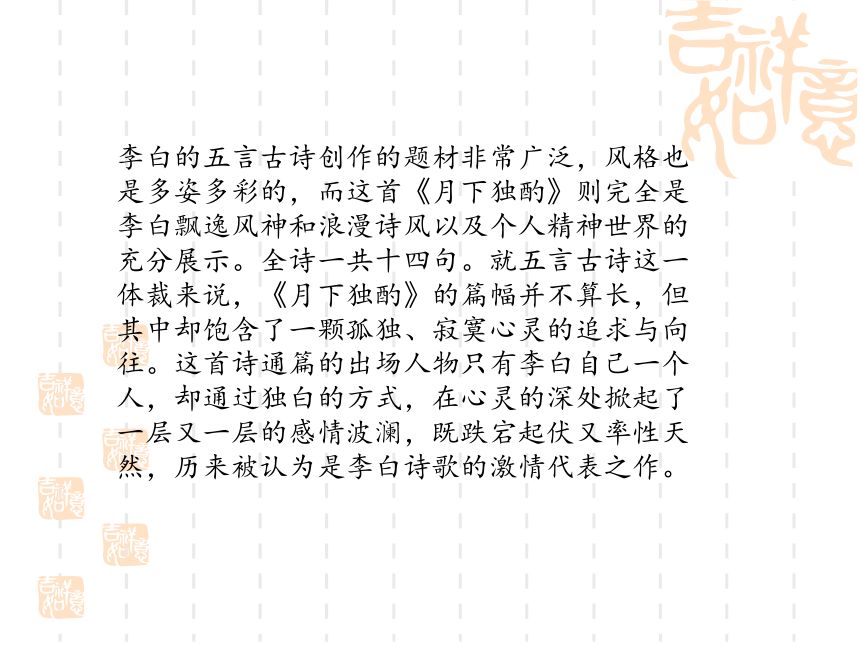 吉祥如意
李白的五言古诗创作的题材非常广泛，风格也
是多姿多彩的，而这首《月下独酌》则完全是
李白飘逸风神和浪漫诗风以及个人精神世界的
充分展示。全诗一共十四句。就五言古诗这一
体裁来说，《月下独酌》的篇幅并不算长，但
其中却饱含了一颗孤独、寂寞心灵的追求与向
往。这首诗通篇的出场人物只有李白自己一个
人，却通过独白的方式，在心灵的深处掀起了
一层又一层的感情波澜，既跌宕起伏又率性天
然，历来被认为是李白诗歌的激情代表之作。
吉祥如意
吉祥如意
吉祥如意
吉祥如意
吉祥如意
吉祥如意